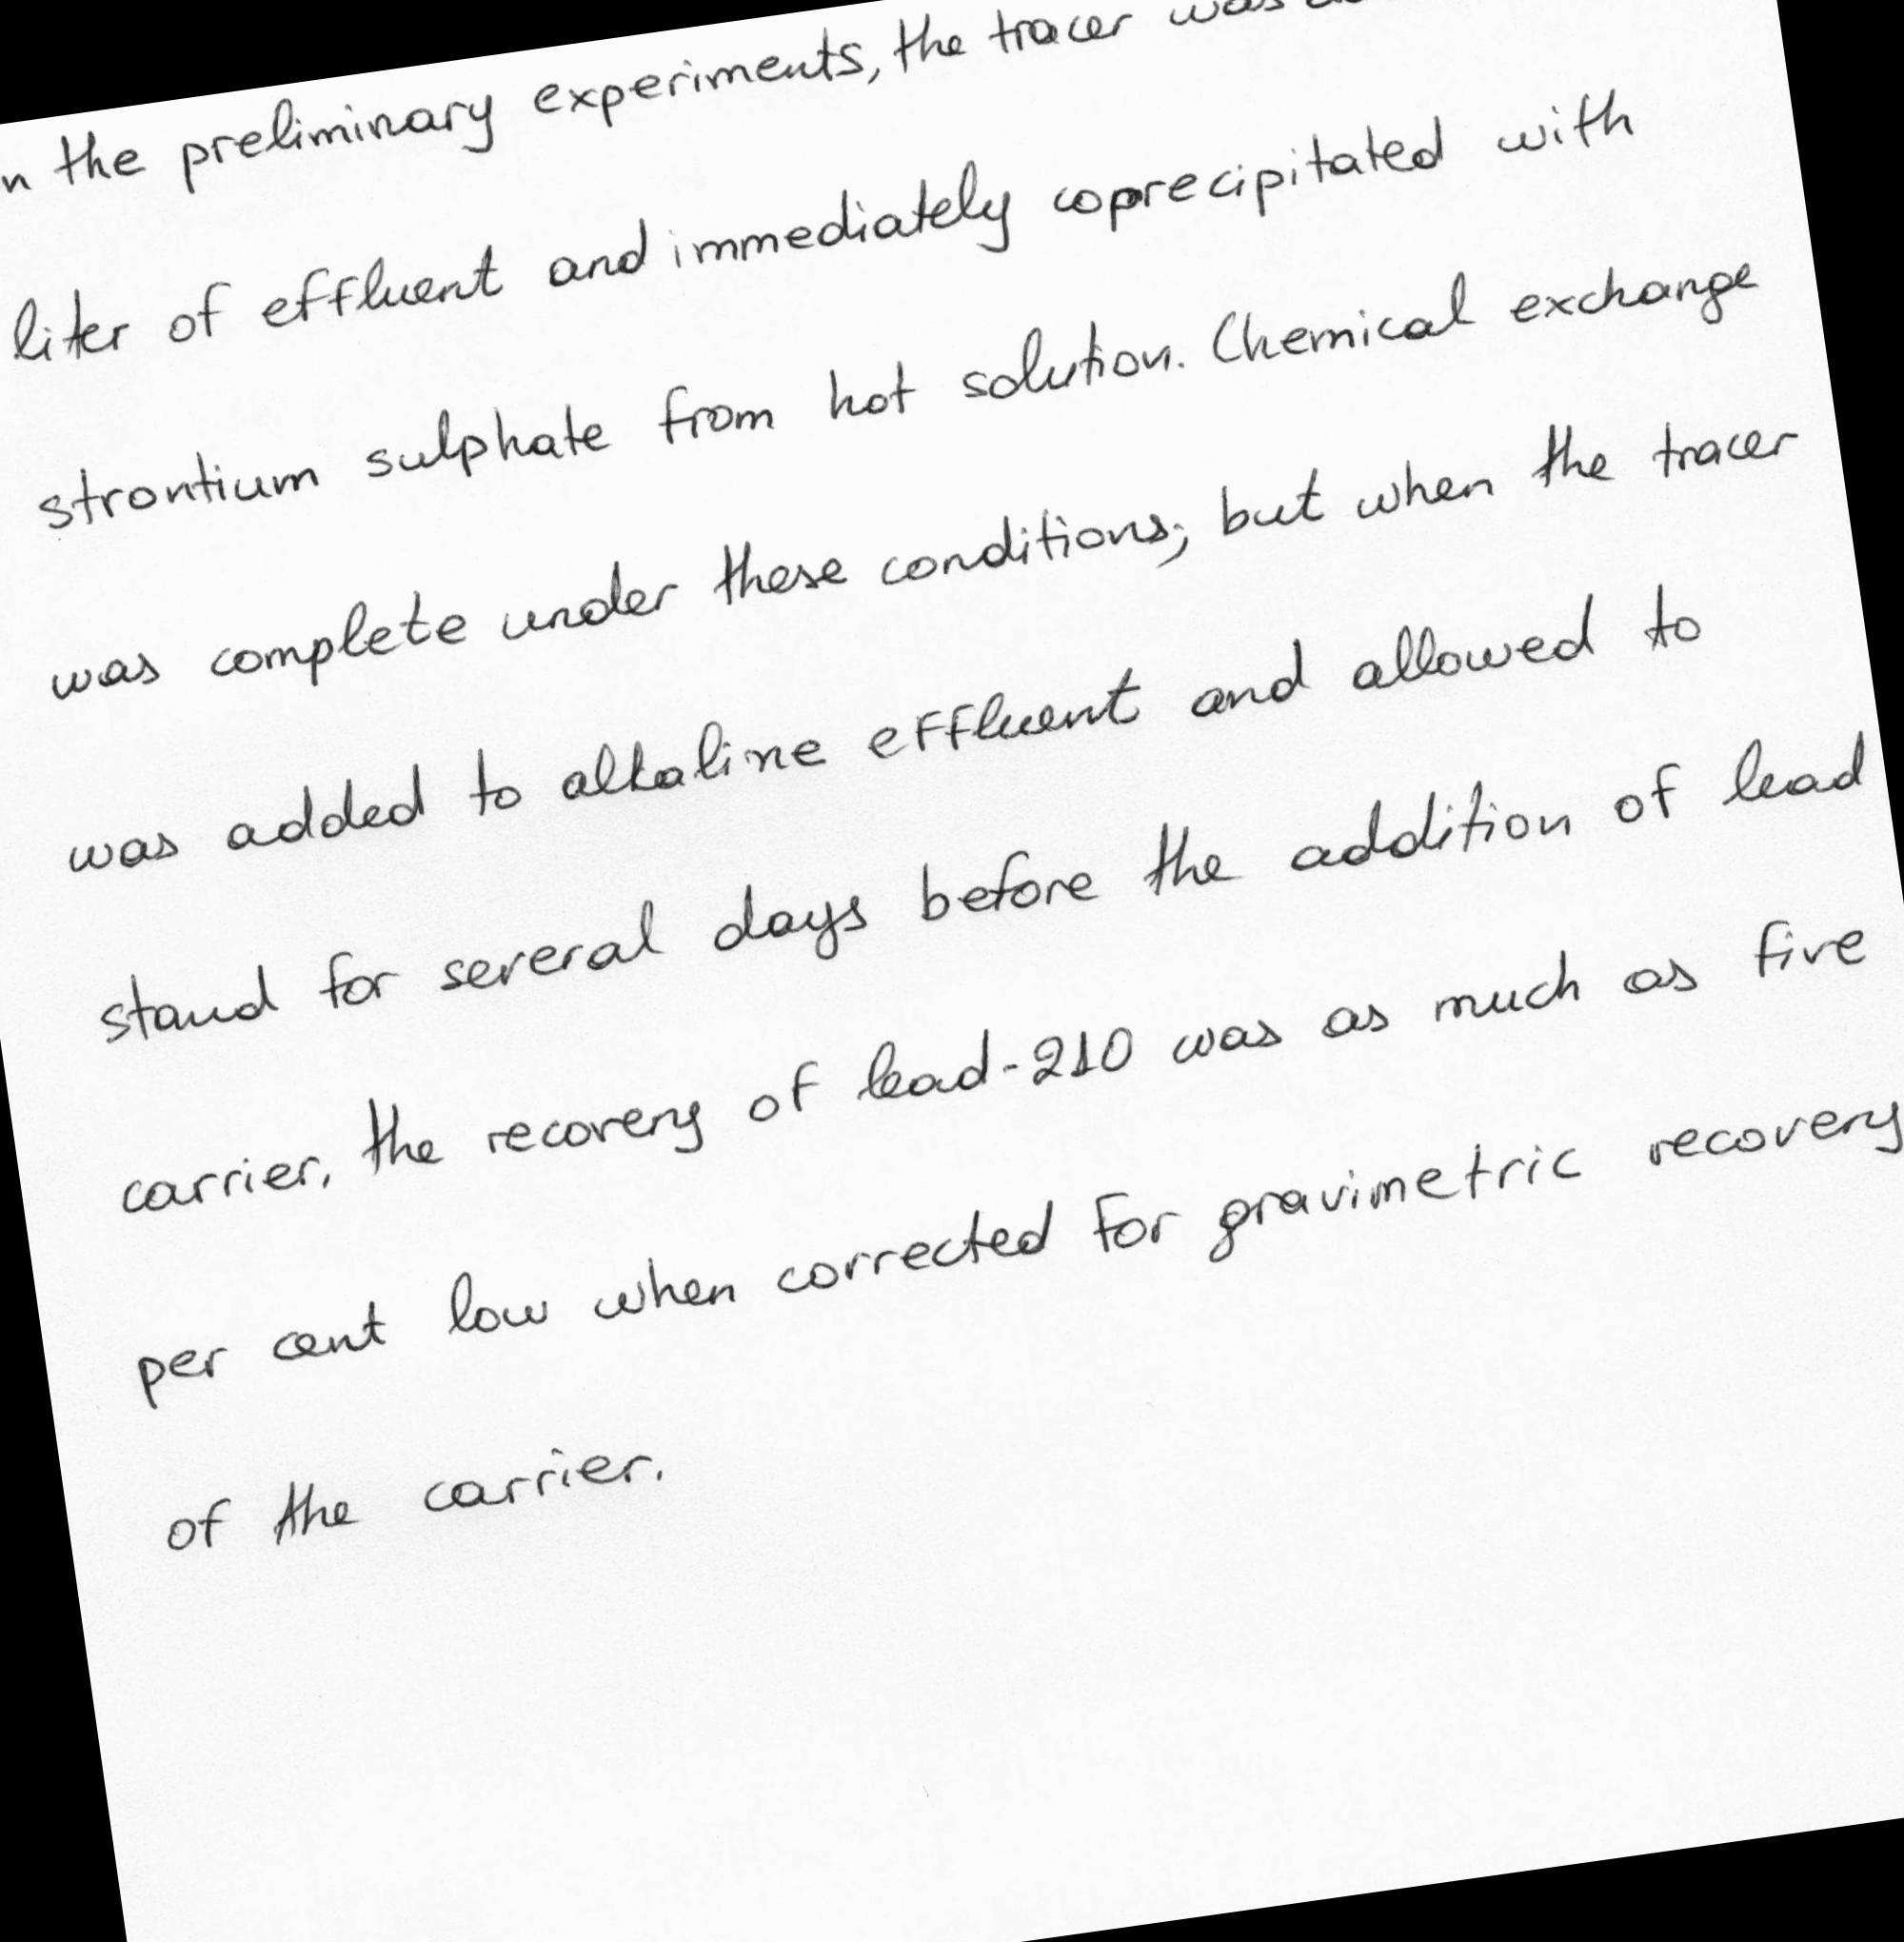 n the preliminary experiments, the tracer was
liter of effluent and immediately coprecipitated with
strontium sulphate from hot solution. Chemical exchange
was complete under these conditions; but when the tracer
was added to alkaline effluent and allowed to
stand for several days before the addition of lead
carrier, the recovery of lead-210 was as much as five
per cent low when corrected for gravimetric recovery
of the carrier.